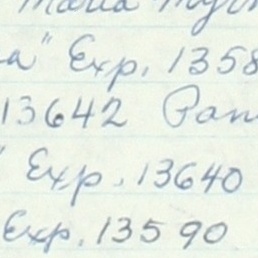 Maria
a" Exp. 1358
13642 Pan
" Exp. 13640
Exp. 13590